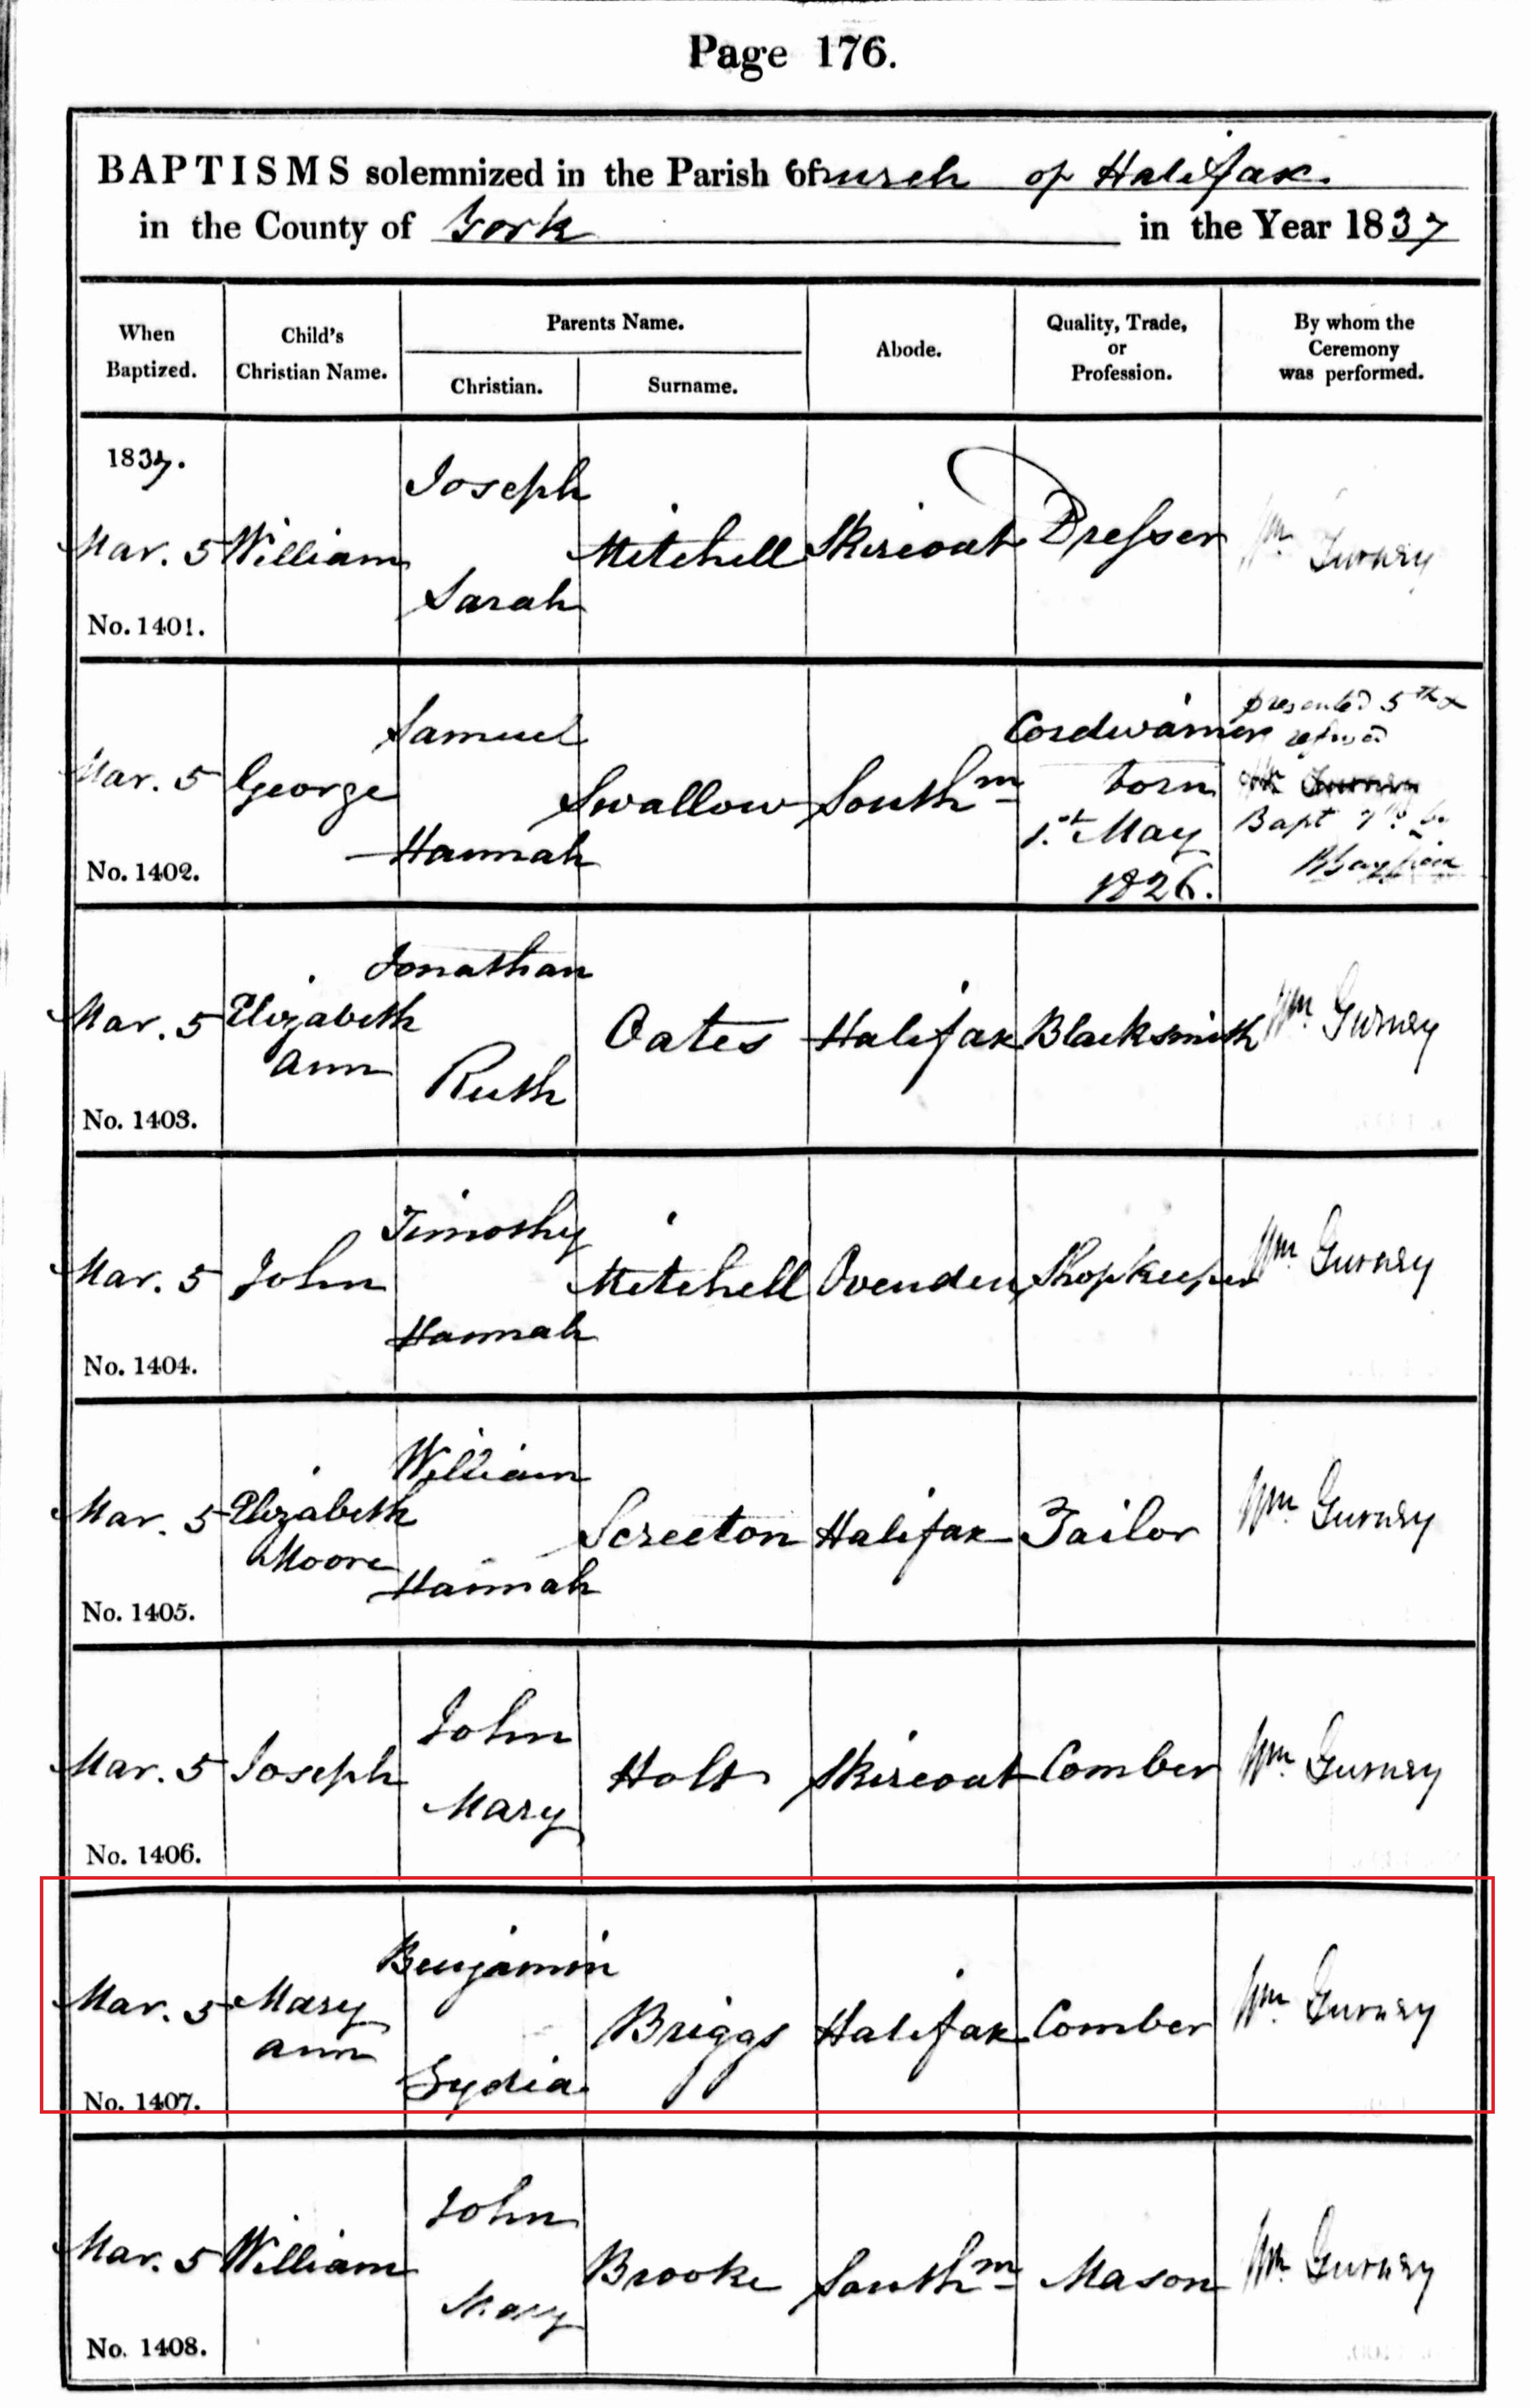 Page 176.
BAPTISMS solemnized in the Parish Church of Halifax.
in the County of York in the Year 1837
When Baptized.
Child's Christian Name.
Parents Name.
Christian.
Surname.
Abode.
Quality, Trade, or Profession.
By whom the Ceremony was performed.
1837.
Mar. 5 William Joseph Sarah Mitchell Skircoat Dresser Wm Gurney
No. 1401.
Mar. 5 George Samuel Hannah Swallow Southm Cordwainer born 1st May 1826. presented 5th & refused Bapt
No. 1402.
Mar. 5 Elizabeth Ann Jonathan Ruth Oates Halifax Blacksmith Wm Gurney
No. 1403.
Mar. 5 John Timothy Hannah Mitchell Ovenden Shopkeeper Wm Gurney
No. 1404.
Mar. 5 Elizabeth Moore William Hannah Screeton Halifax Tailor Wm Gurney
No. 1405.
Mar. 5 Joseph John Mary Holt Skircoat Comber Wm Gurney
No. 1406.
Mar. 5 Mary Ann Benjamin Lydia Briggs Halifax Comber Wm Gurney
No. 1407.
Mar. 5 William John Mary Brooke Southm Mason Wm Gurney
No. 1408.